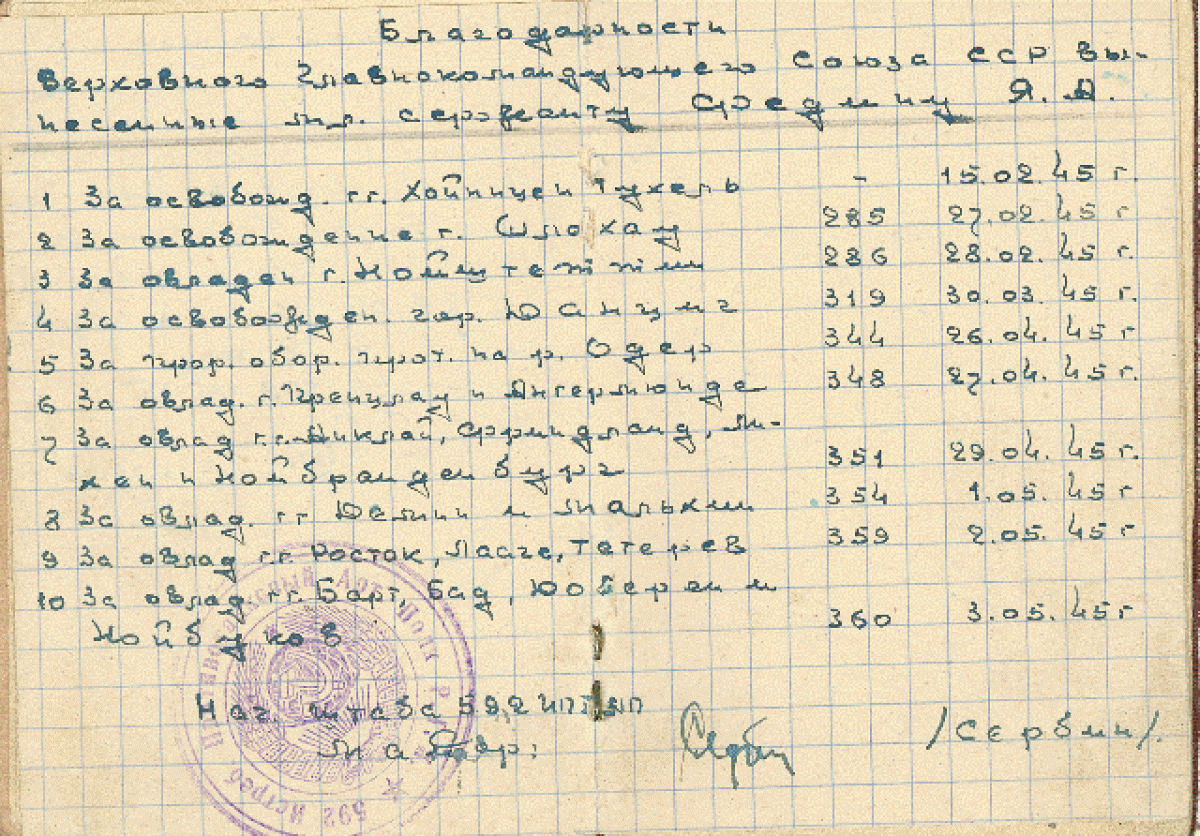 Благодарности
Верховного Главнокомандующего Союза ССР вы-
несенные мл. сержанту Средину Я. А.
1 За освобожд. г.г. Хойнице и Тухель - 15.02.45 г.
2 За освобождение г. Шлохау 285 27.02.45 г
3 За овладен г. Нойштеттин 286 28.02.45 г.
4 За освобожден. гор. Данциг 319 30.03.45 г.
5 За прор. обор. прот. на р. Одер 344 26.04.45 г.
6 За овлад. г. Пренцлау и Ангермюнде 348 27.04.45 г.
7 За овлад г.г. Фридланд,
и Нойбранденбург 351 29.04.45 г.
8 За овлад. г.г и Мальхин 354 1.05.45 г
9 За овлад г.г. Росток, Лааге, Тетерев 359 2.05.45 г
10 За овлад. г.г. Барт, Бад, Доберан и
Нойбуков 360 3.05.45г
Нач. штаба 592 ИПТАП
Майор: /Сербин/.
592 Истреб